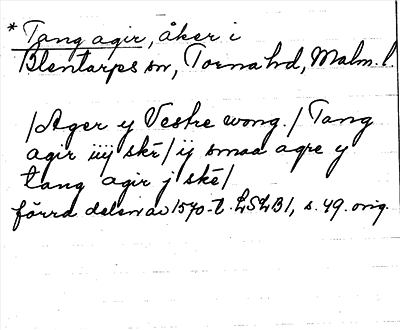 * Tang agir, åker i
Blentarps sn, Torna hd, Malm. l.
/Ager y Vestre wong./ Tang
agir iiij skē/ ij smaa agre y
tang agir j skē/
förra delen av 1570-t. LSLB1, s. 49. orig.